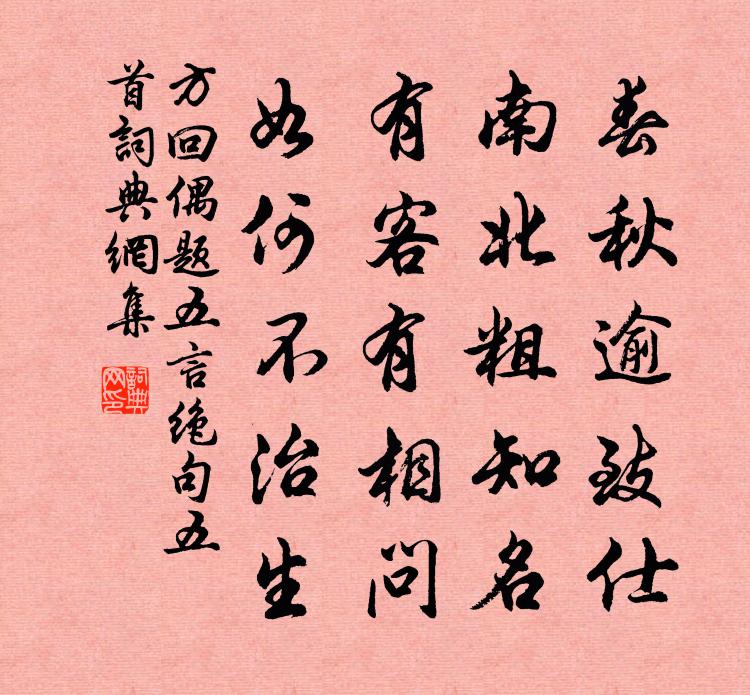 春秋逾致仕
南北粗知名
有客有相问
如何不治生
方回偶题五言绝句五
首詞典網集
詞典网印